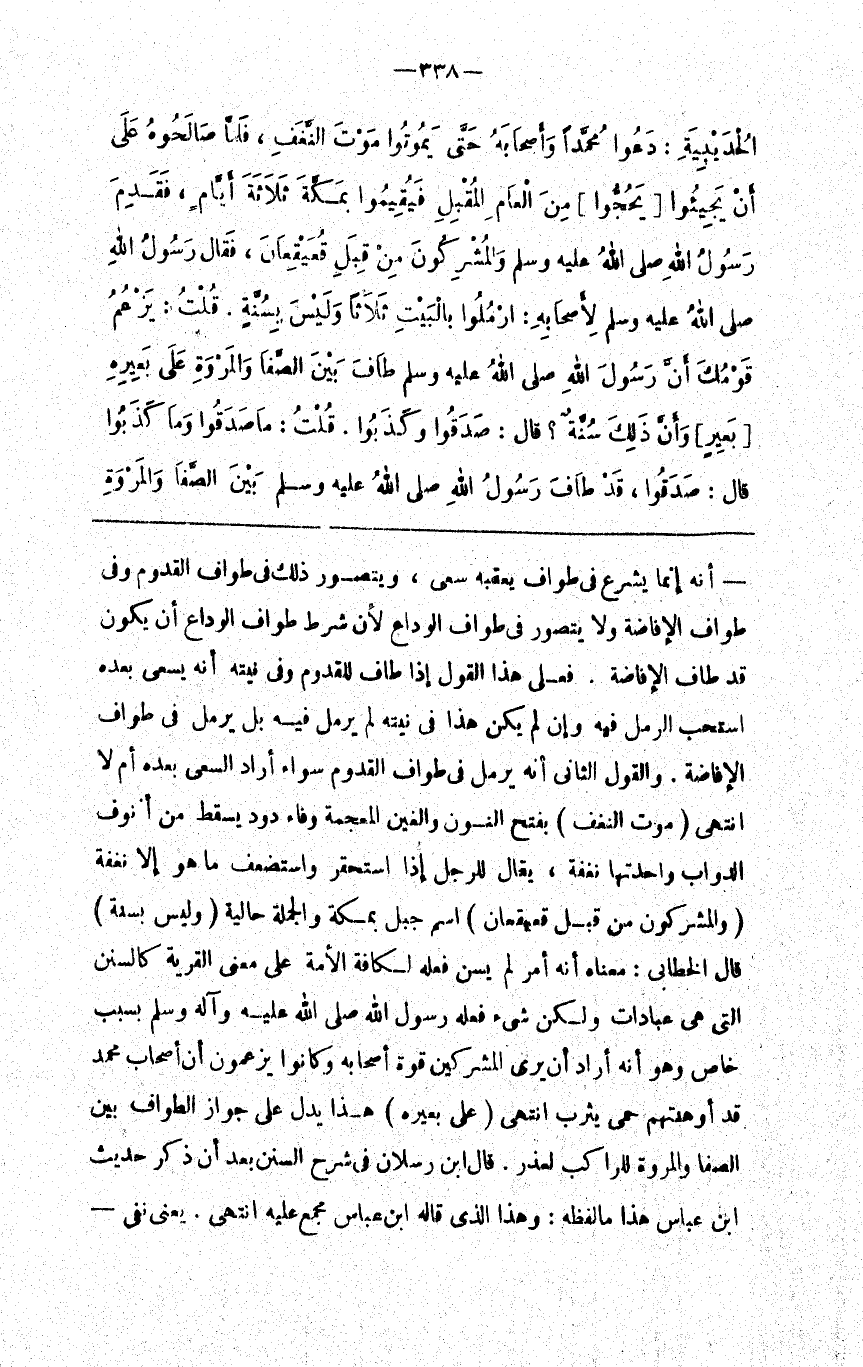 —٣٣٨—
الْحُدَيْبِيَةِ : دَعُوا مُحَمَّداً وَأَصْحَابَهُ حَتَّى يَمُوتُوا مَوْتَ النَّغَفِ ، فَلَمَّا صَالَحُوهُ عَلَى
أَنْ يَجِيئُوا [ يَحُجُّوا ] مِنَ الْعَامِ الْمُقْبِلِ فَيُقِيمُوا بِمَكَّةَ ثَلَاثَةَ أَيَّامٍ ، فَقَدِمَ
رَسُولُ اللهِ صلى اللهُ عليه وسلم وَالْمُشْرِكُونَ مِنْ قِبَلِ قُعَيْقِعَانَ ، فَقَال رَسُولُ اللهِ
صلى اللهُ عليه وسلم لِأَصحَابِهِ : ارْمُلُوا بِالْبَيْتِ ثَلَاثًا وَلَيْسَ بِسُنَّةٍ . قُلْتُ : يَزْعُمُ
قَوْمُكَ أَنَّ رَسُولَ اللهِ صلى اللهُ عليه وسلم طَافَ بَيْنَ الصَّفَا وَالْمَرْوَةِ عَلَى بَعِيرِهِ
[ بَعِيرٍ ] وَأَنَّ ذَلِكَ سُنَّةٌ ؟ قال : صَدَقُوا وكَذَبُوا . قُلْتُ : مَا صَدَقُوا وَمَا كَذَبُوا
قال : صَدَقُوا ، قَدْ طَافَ رَسُولُ اللهِ صلى اللهُ عليه وسلم بَيْنَ الصَّفَا وَالْمَرْوَةِ
— أنه إنما يشرع فى طواف يعقبه سعى ، ويتصور ذلك فى طواف القدوم وفى
طواف الإفاضة ولا يتصور فى طواف الوداع لأن شرط طواف الوداع أن يكون
قد طاف الإفاضة . فعلى هذا القول إذا طاف للقدوم وفى نيته أنه يسعى بعده
استحب الرمل فيه وإن لم يكن هذا فى نيته لم يرمل فيه بل يرمل فى طواف
الإفاضة . والقول الثانى أنه يرمل فى طواف القدوم سواء أراد السعى بعده أم لا
انتهى ( موت النغف ) بفتح النون والغين المعجمة وفاء دود يسقط من أنوف
الدواب واحدتها نغفة ، يقال للرجل إذا استحقر واستضعف ما هو إلا نغفة
( والمشركون من قبل قعيقعان ) اسم جبل بمكة والجملة حالية ( وليس بسنة )
قال الخطابى : معناه أنه أمر لم يسن فعله لكافة الأمة على معنى القربة كالسنن
التى هى عبادات ولكن شىء فعله رسول الله صلى الله عليه وآله وسلم بسبب
خاص وهو أنه أراد أن يرى المشركين قوة أصحابه وكانوا يزعمون أن أصحاب محمد
قد أوهنتهم حمى يثرب انتهى ( على بعيره ) هذا يدل على جواز الطواف بين
الصفا والمروة للراكب لعذر . قال ابن رسلان فى شرح السنن بعد أن ذكر حديث
ابن عباس هذا مالفظه : وهذا الذى قاله ابن عباس مجمع عليه انتهى . يعنى نفى —